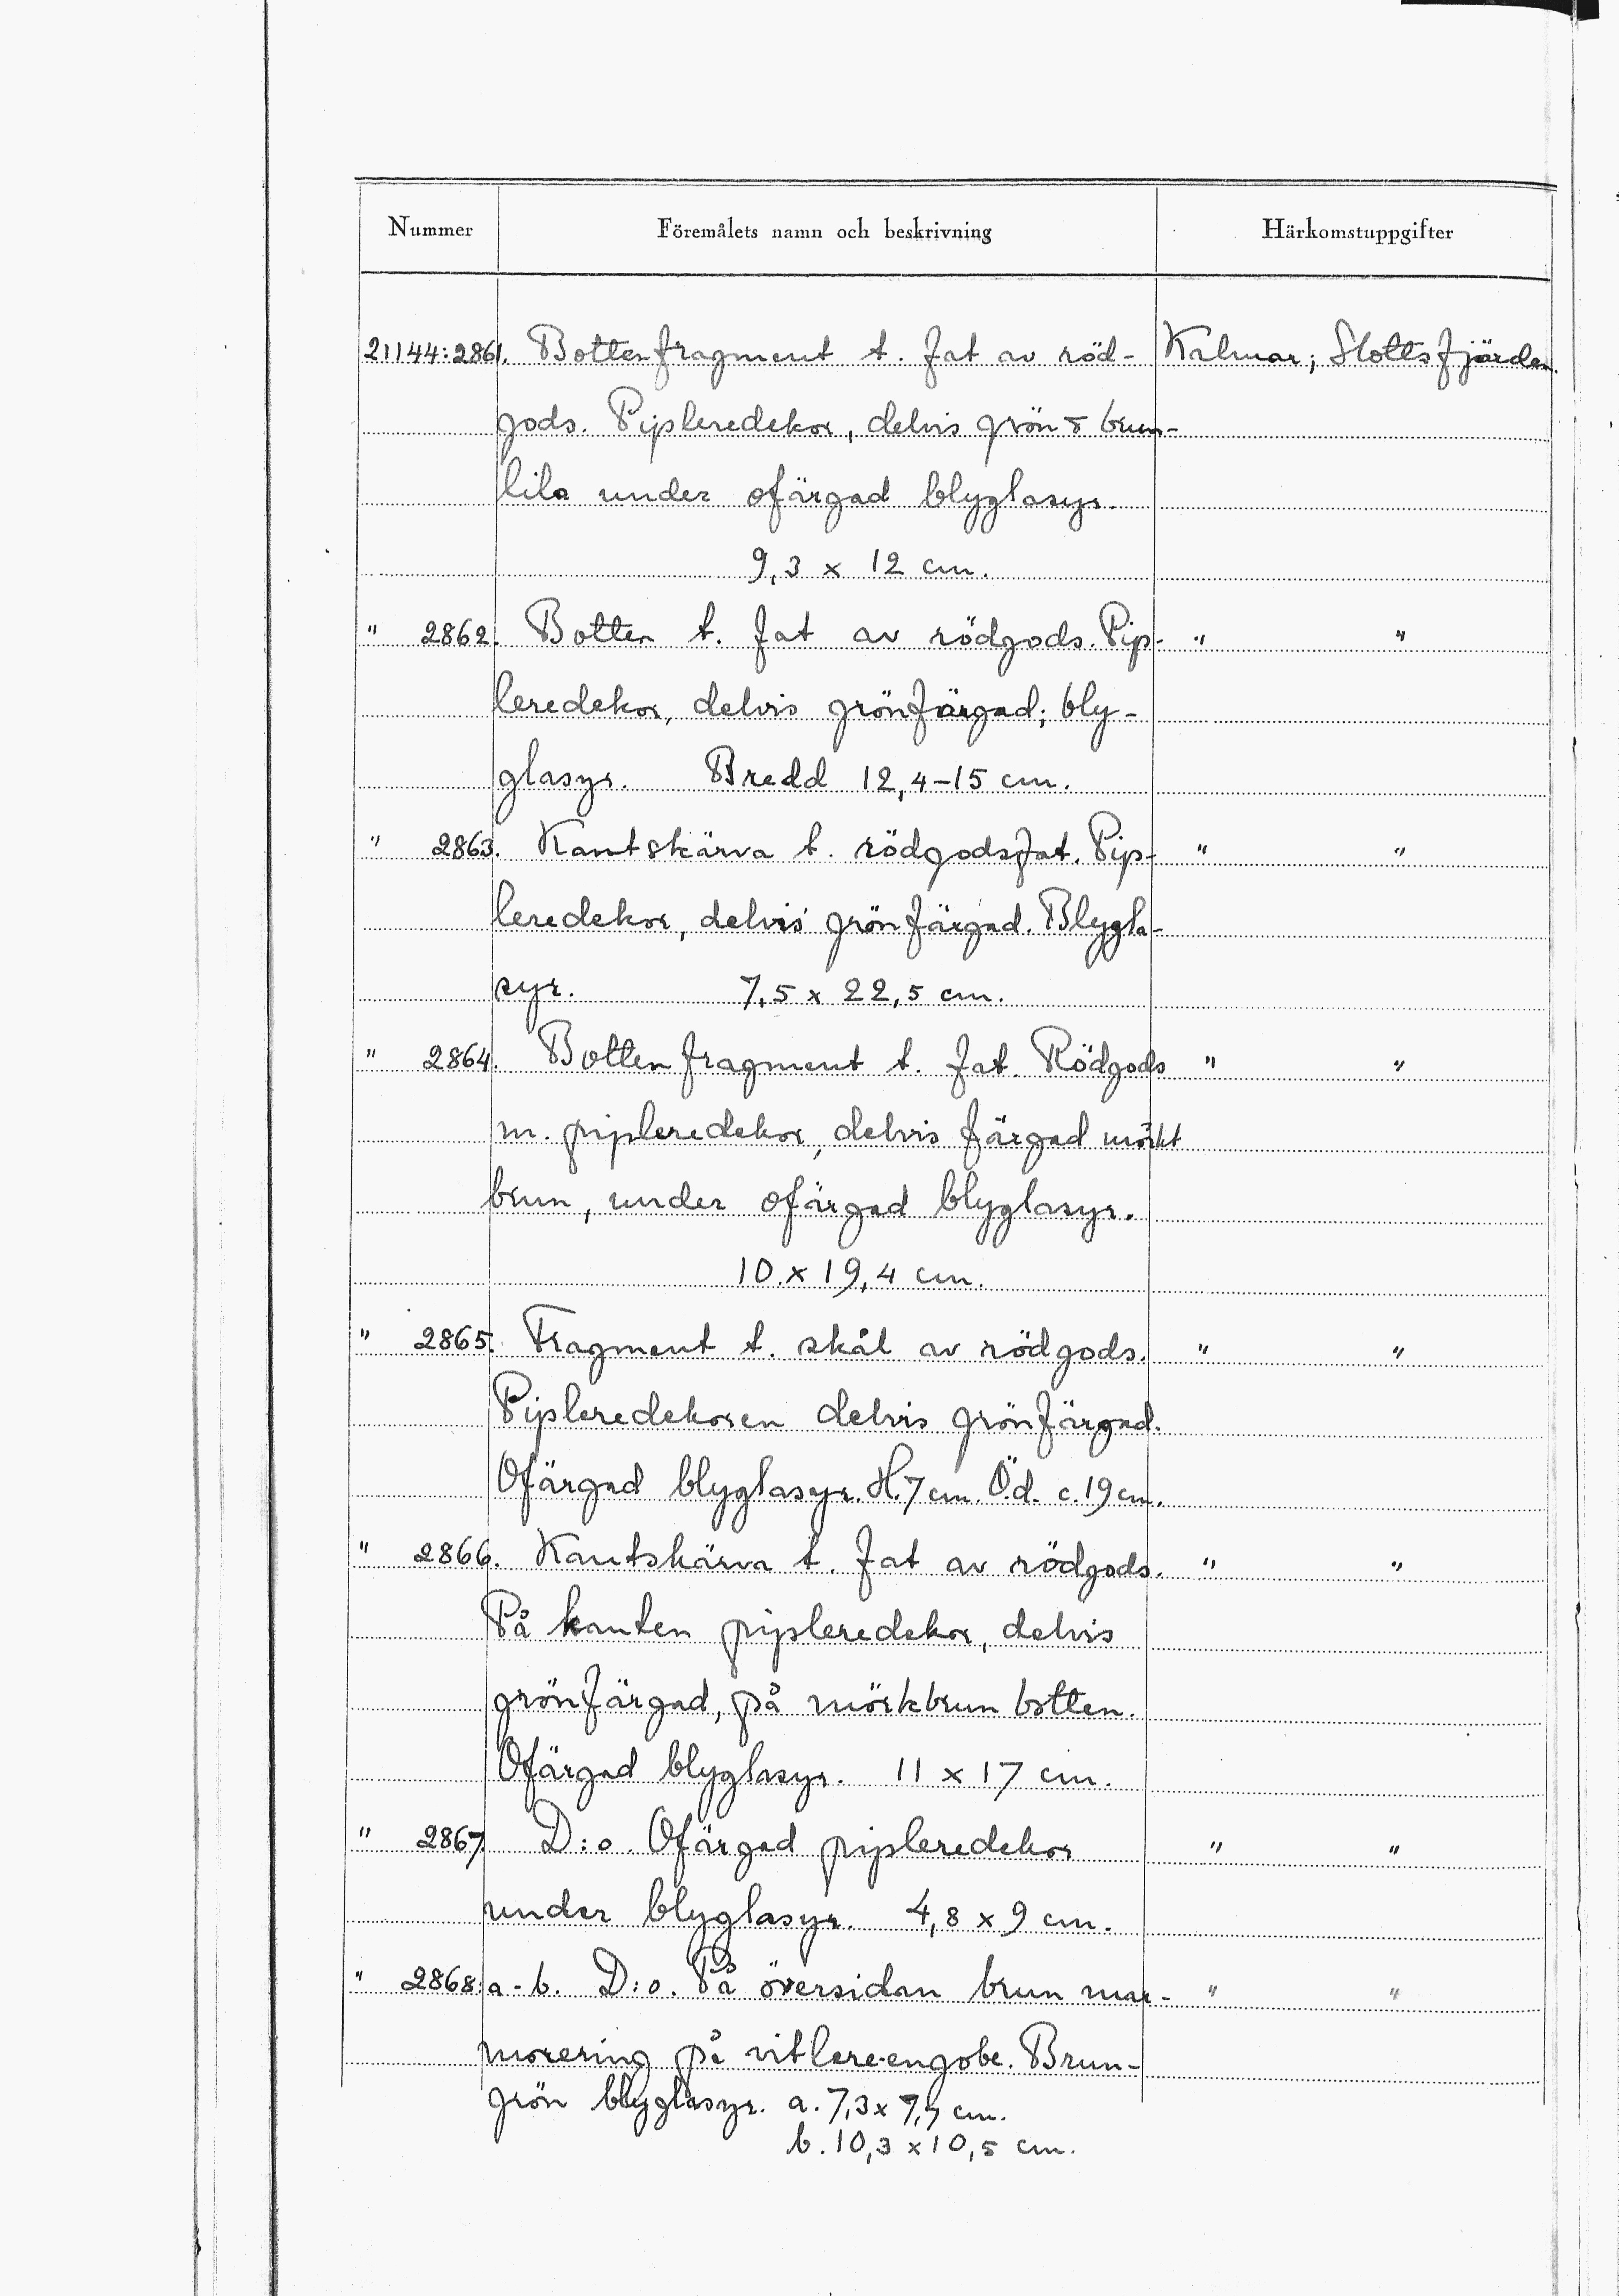 Nummer Föremålets namn och beskrivning Härkomstuppgifter
21144:2861. Bottenfragment t. fat av röd- Kalmar; Slottsfjärden.
gods. Pipleredekor, delvis grön & brun-
lila under ofärgad blyglasyr.
9,3 x 12 cm.
" 2862. Botten t. fat av rödgods. Pip- " "
leredekor, delvis grönfärgad; bly-
glasyr. Bredd 12,4-15 cm.
" 2863. Kantskärva t. rödgodsfat. Pip- " "
leredekor, delvis grönfärgad. Blygla-
syr. 7,5 x 22,5 cm.
" 2864. Bottenfragment t. fat. Rödgods " "
m. pipleredekor, delvis färgad mörkt
brun, under ofärgad blyglasyr.
10 x 19,4 cm.
" 2865. Fragment t. skål av rödgods. " "
Pipleredekoren delvis grönfärgad.
Ofärgad blyglasyr. H. 7 cm. Ö.d. c. 19 cm.
" 2866. Kantskärva t. fat av rödgods. " "
På kanten pipleredekor, delvis
grönfärgad, på mörkbrun botten.
Ofärgad blyglasyr. 11 x 17 cm.
" 2867. D:o. Ofärgad pipleredekor " "
under blyglasyr. 4,8 x 9 cm.
" 2868:a-b. D:o. På översidan brun mar- " "
morering på vitlere-engobe. Brun-
grön blyglasyr. a. 7,3 x cm.
b. 10,3 x 10,5 cm.